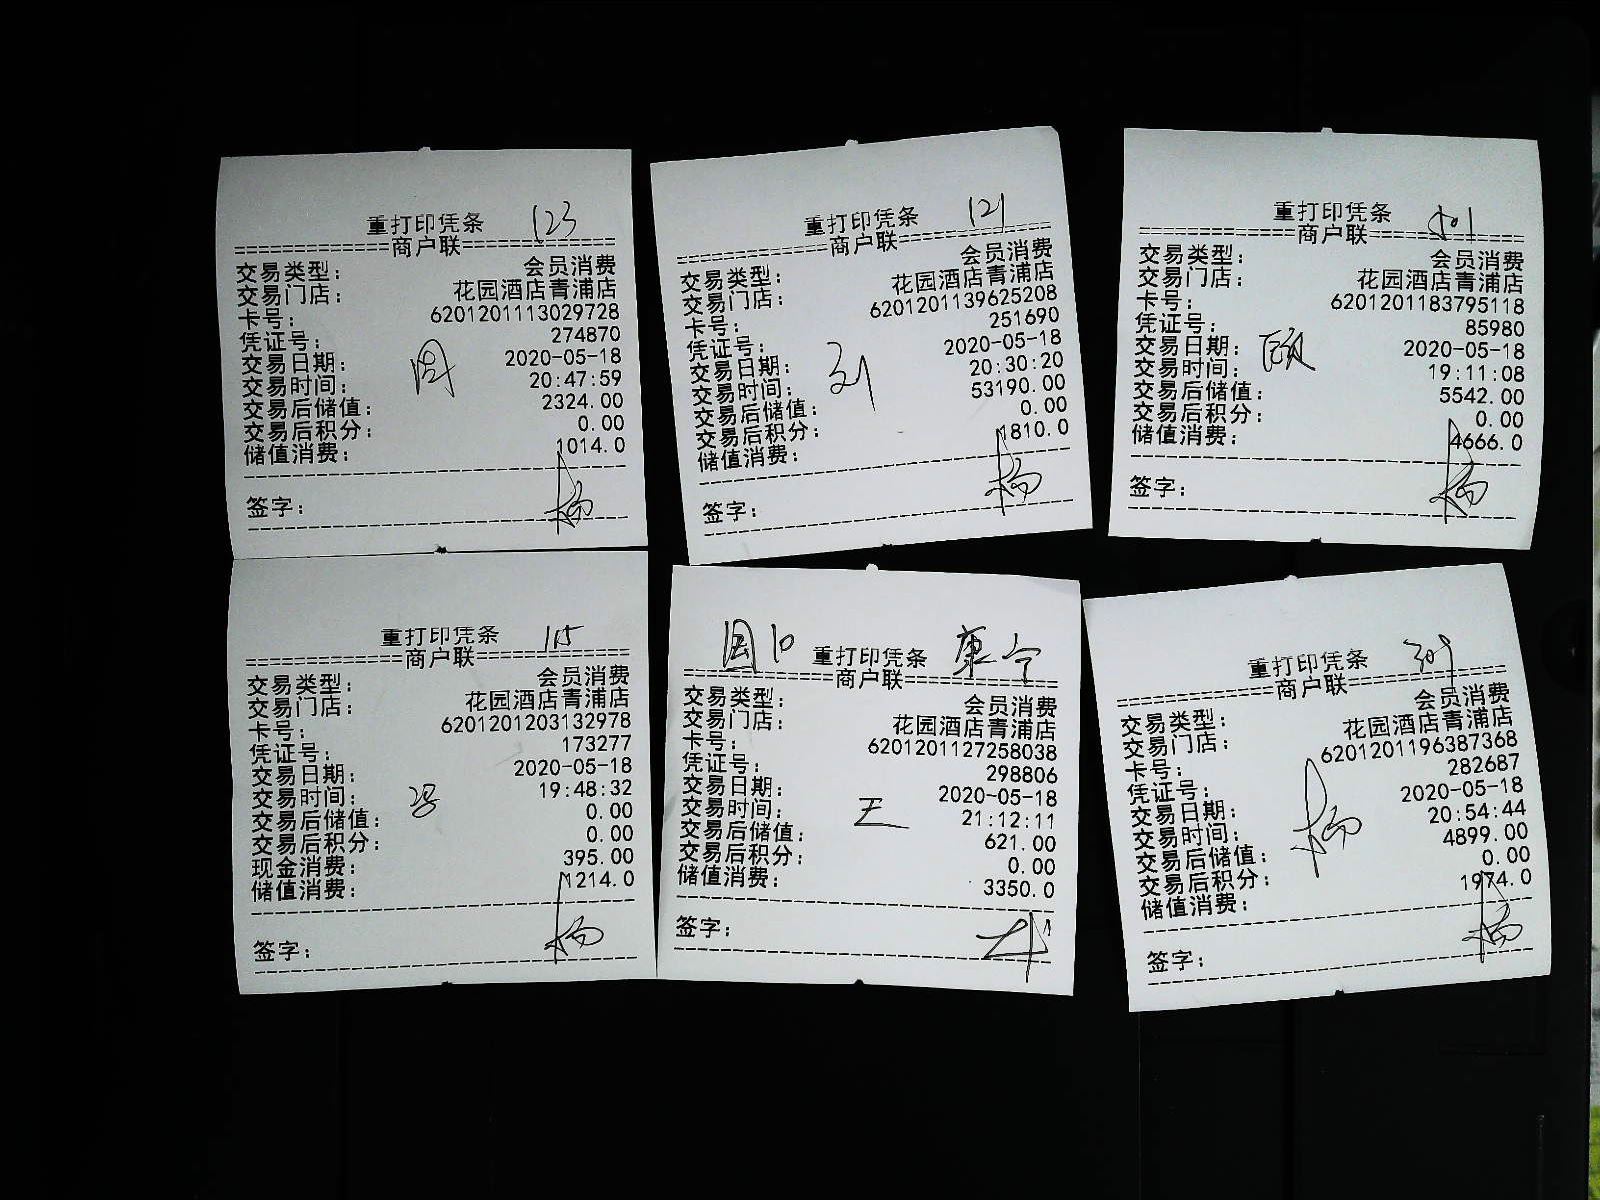 重打印凭条 123
商户联
交易类型: 会员消费
交易门店: 花园酒店青浦店
卡号: 6201201113029728
凭证号: 274870
交易日期: 2020-05-18
交易时间: 20:47:59
交易后储值: 2324.00
交易后积分: 0.00
储值消费: 1014.0
周
签字: 杨
重打印凭条 121
商户联
交易类型: 会员消费
交易门店: 花园酒店青浦店
卡号: 6201201139625208
凭证号: 251690
交易日期: 2020-05-18
交易时间: 20:30:20
交易后储值: 53190.00
交易后积分: 0.00
储值消费: 1810.0
刘
签字: 杨
重打印凭条
商户联
交易类型: 会员消费
交易门店: 花园酒店青浦店
卡号: 6201201183795118
凭证号: 85980
交易日期: 2020-05-18
交易时间: 19:11:08
交易后储值: 5542.00
交易后积分: 0.00
储值消费: 4666.0
签字: 杨
重打印凭条 115
商户联
交易类型: 会员消费
交易门店: 花园酒店青浦店
卡号: 6201201203132978
凭证号: 173277
交易日期: 2020-05-18
交易时间: 19:48:32
交易后储值: 0.00
交易后积分: 0.00
现金消费: 395.00
储值消费: 1214.0
签字: 杨
重打印凭条 康宁
商户联
交易类型: 会员消费
交易门店: 花园酒店青浦店
卡号: 6201201127258038
凭证号: 298806
交易日期: 2020-05-18
交易时间: 21:12:11
交易后储值: 621.00
交易后积分: 0.00
储值消费: 3350.0
王
签字:
重打印凭条
商户联
交易类型: 会员消费
交易门店: 花园酒店青浦店
卡号: 6201201196387368
凭证号: 282687
交易日期: 2020-05-18
交易时间: 20:54:44
交易后储值: 4899.00
交易后积分: 0.00
储值消费: 1974.0
杨
签字: 杨